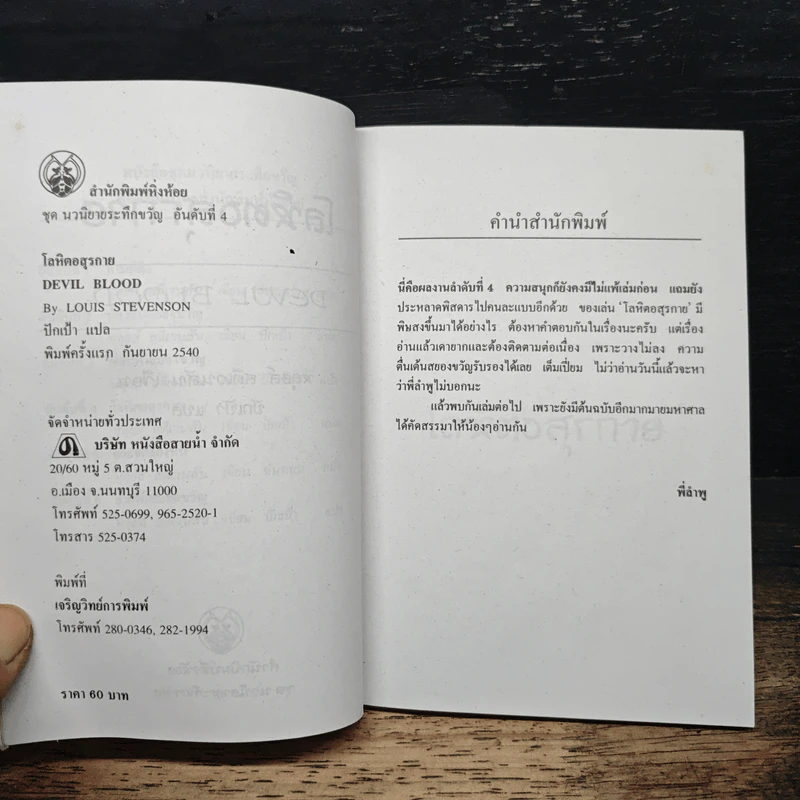 สำนักพิมพ์หิ่งห้อย
ชุด นวนิยายระทึกขวัญ อันดับที่ 4
โลหิตอสุรกาย
DEVIL BLOOD
By LOUIS STEVENSON
ปักเป้า แปล
พิมพ์ครั้งแรก กันยายน 2540
จัดจำหน่ายทั่วประเทศ
บริษัท หนังสือสายน้ำ จำกัด
20/60 หมู่ 5 ต.สวนใหญ่
อ.เมือง จ.นนทบุรี 11000
โทรศัพท์ 525-0699, 965-2520-1
โทรสาร 525-0374
พิมพ์ที่
เจริญวิทย์การพิมพ์
โทรศัพท์ 280-0346, 282-1994
ราคา 60 บาท
คำนำสำนักพิมพ์
นี่คือผลงานลำดับที่ 4 ความสนุกก็ยังคงมีไม่แพ้เล่มก่อน แถมยัง
ประหลาดพิสดารไปคนละแบบอีกด้วย ของเล่น ‘โลหิตอสุรกาย’ มี
พิษสงขึ้นมาได้อย่างไร ต้องหาคำตอบกันในเรื่องนะครับ แต่เรื่อง
อ่านแล้วเดายากและต้องติดตามต่อเนื่อง เพราะวางไม่ลง ความ
ตื่นเต้นสยองขวัญรับรองได้เลย เต็มเปี่ยม ไม่ว่าอ่านวันนี้แล้วจะหา
ว่าพี่ลำพูไม่บอกนะ
แล้วพบกันเล่มต่อไป เพราะยังมีต้นฉบับอีกมากมายมหาศาล
ได้คัดสรรมาให้น้องๆอ่านกัน
พี่ลำพู